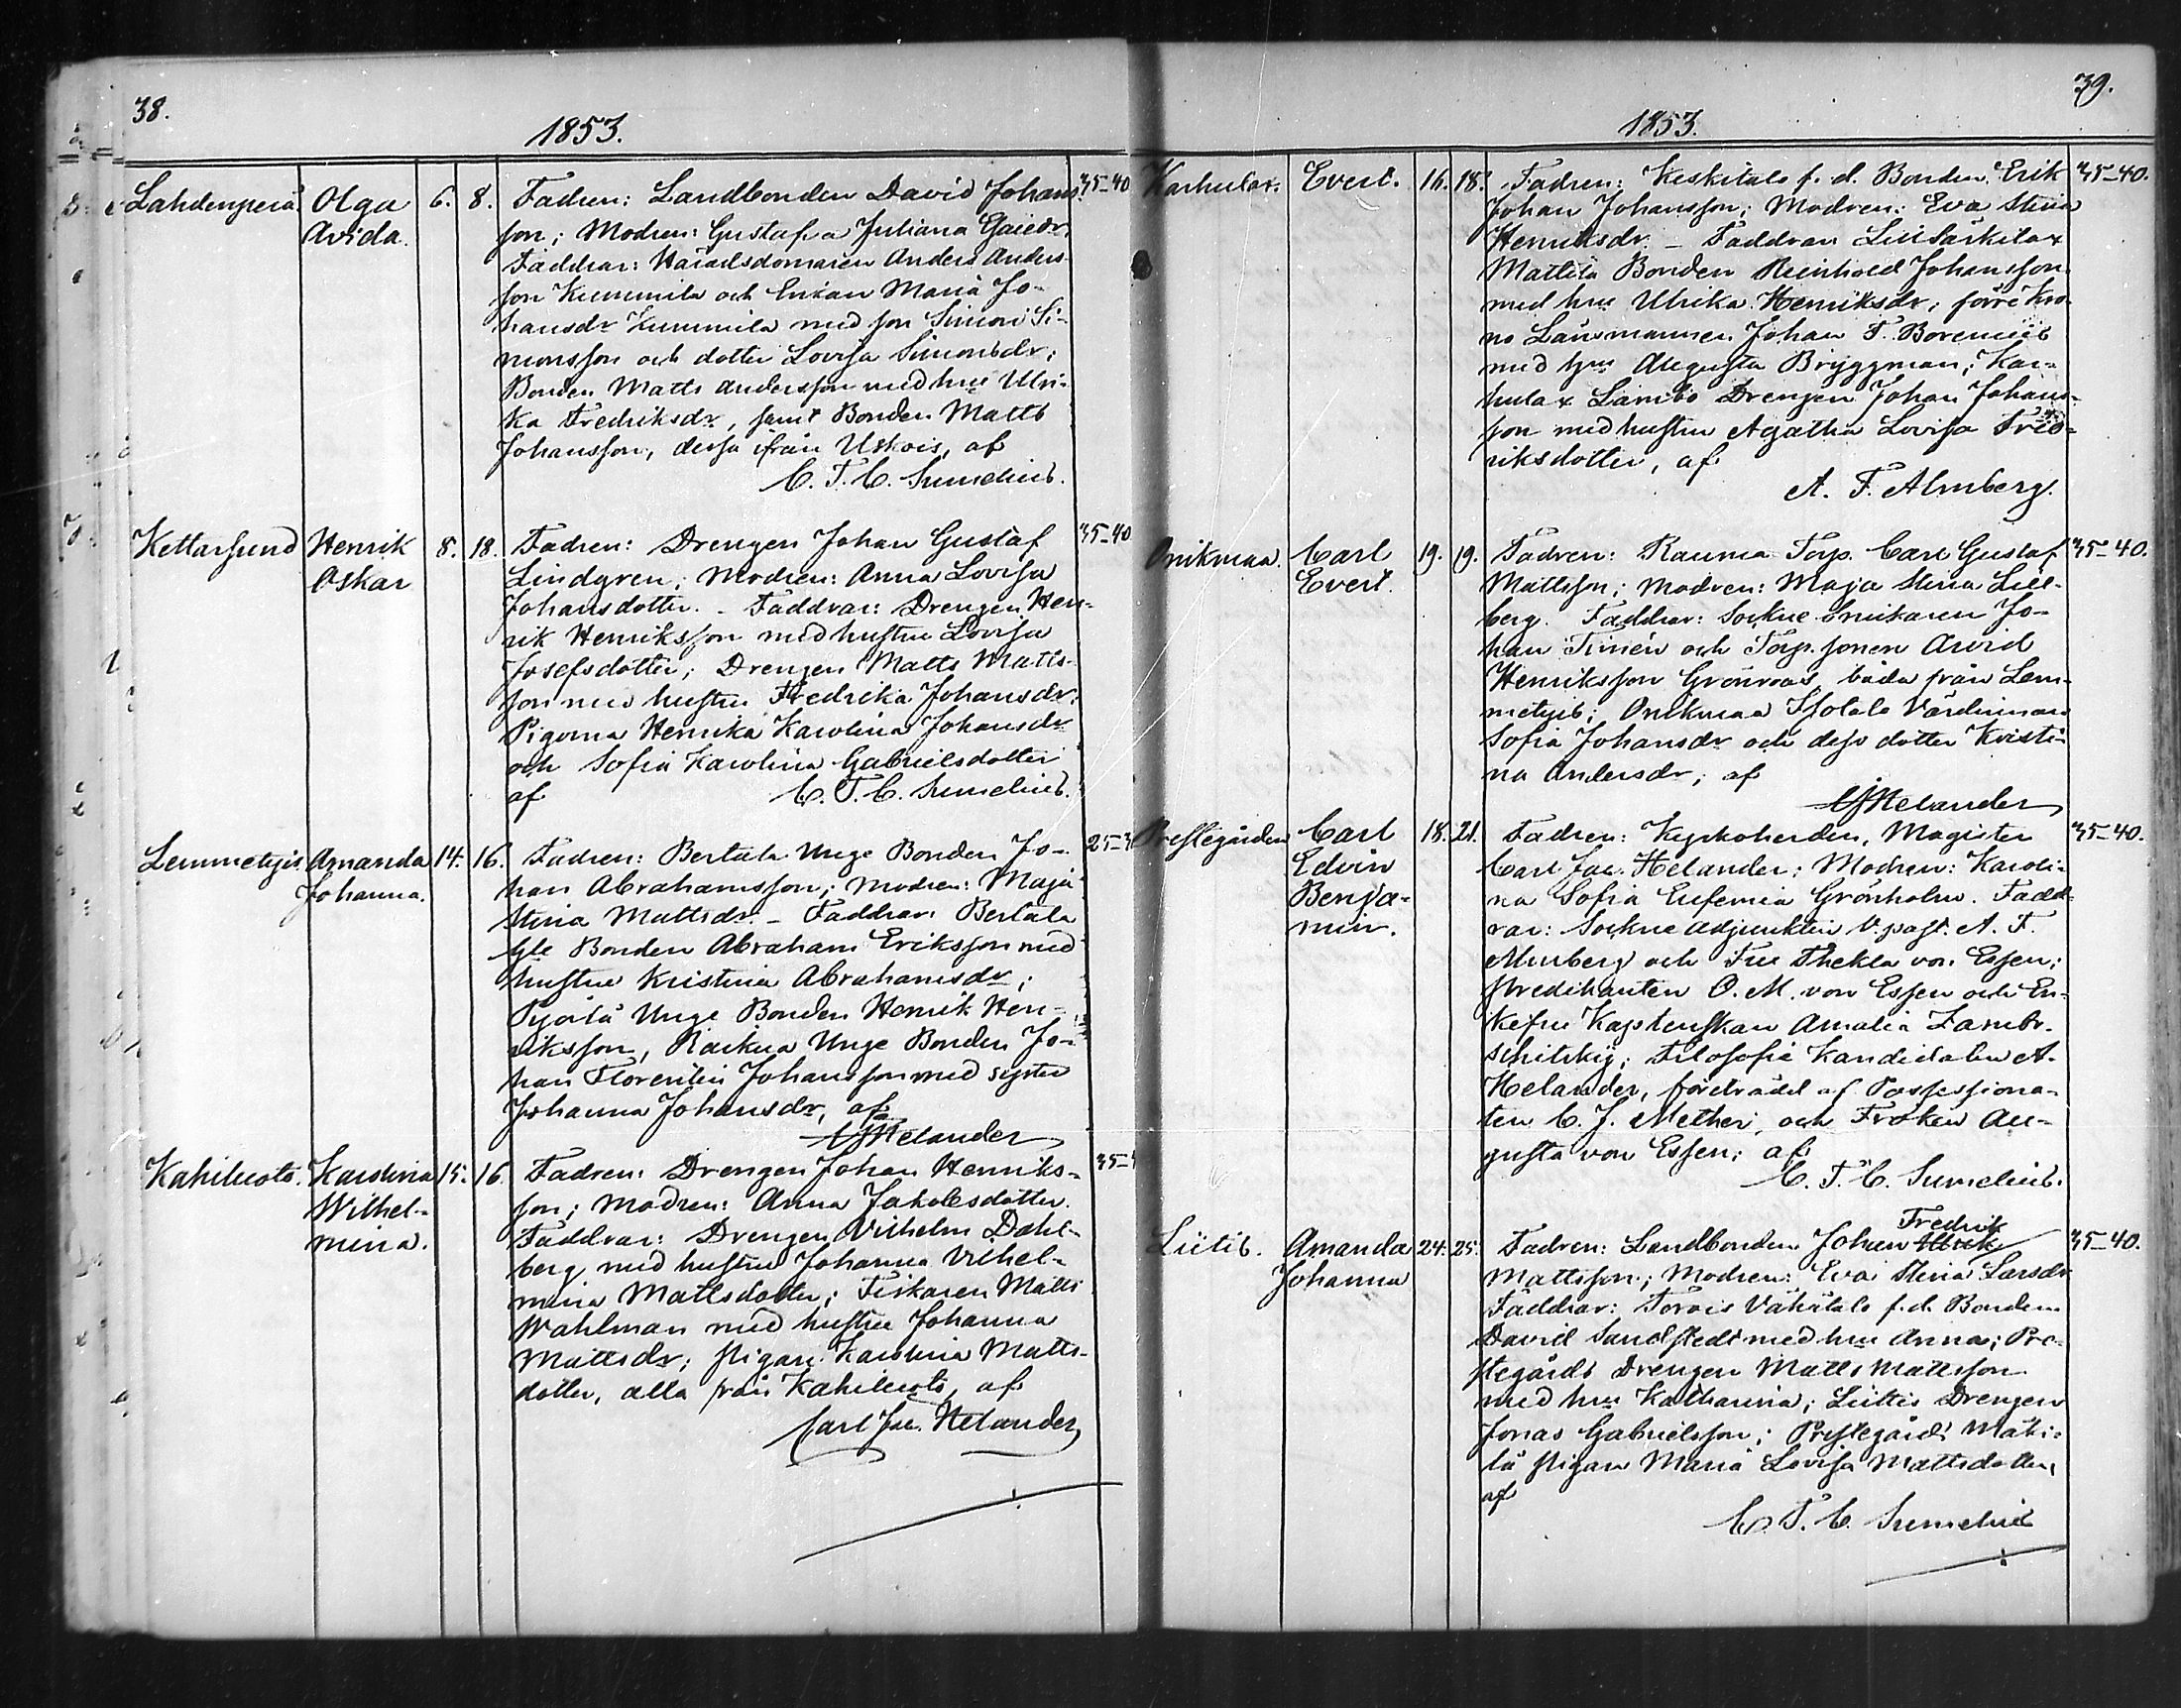 38.
1853.
Lahdenperä. Olga 6. 8. Fadren: Landbonden David Johans- 35-40
Avida. son; Modren: Gustafva Juliana
Faddrar: Häradsdomaren Anders Anders-
son Kummila och Enkan Maria Jo-
hansdr Kummila med son Simon Si-
monsson och dotter Lovisa Simonsdr;
Bonden Matts Andersson med hu Ulri-
ka Fredriksdr, samt Bonden Matts
Johansson, dessa ifrån Uskois, af
C. T. C. Sumelius.
Kettarsund Henrik 8. 18. Fadren: Drengen Johan Gustaf 35-40
Oskar Lindgren; Modren: Anna Lovisa
Johansdotter. - Faddrar: Drengen Hen-
rik Henriksson med hustru Lovisa
Josefsdotter; Drengen Matts Matts-
son med hustru Fredrika Johansdr;
Pigorna Henrika Karolina Johansdr
och Sofia Karolina Gabrielsdotter
af C. T. C. Sumelius.
Lemmetyis. Amanda 14. 16. Fadren: Bertala Unge Bonden Jo- 25-3
Johanna. han Abrahamsson; Modren: Maja
Stina Mattsdr. - Faddrar: Bertala
Gle Bonden Abraham Eriksson med
hustru Kristina Abrahamsdr;
Pyörlä Unge Bonden Henrik Hen-
riksson, Raikua Unge Bonden Jo-
han Florentin Johansson med syster
Johanna Johansdr, af
CJHelander
Kahiluoto. Karolina 15. 16. Fadren: Drengen Johan Henriks- 35-4
Wilhel- son; Modren: Anna Jakobsdotter.
mina. Faddrar: Drengen Vilhelm Dahl-
berg med hustru Johanna Vilhel-
mina Mattsdotter; Fiskaren Matts
Wahlman med hustru Johanna
Mattsdr; pigan Karolina Matts-
dotter, alla från Kahiluoto, af
Carl Jac. Helander
39.
1853.
Karhulax. Evert. 16. 18. Fadren: Keskitalo f. d. Bonden Erik 35-40.
Johan Johansson; Modren: Eva Stina
Henriksdr. - Faddrar Lillsärkilax
Mattila Bonden Reinhold Johansson
med hu Ulrika Henriksdr; förre Kro-
no Länsmannen Johan F. Borenius
med hu Augusta Bryggman; Kar-
hulax Lambo Drengen Johan Johans-
son med hustru Agatha Lovisa Fred-
riksdotter, af
A. F. Almberg.
Onikmaa. Carl 19. 19. Fadren: Rauma Torp. Carl Gustaf 35-40.
Evert. Mattsson; Modren: Maja Stina Lill-
berg. Faddrar: Sockne Snickaren Jo-
han Timén och Torp. sonen Arvid
Henriksson Grönroos, båda från Lem-
metyis; Onikmaa Isotalo Värdinnan
Sofia Johansdr och dess dotter Kristi-
na Andersdr; af
CJHelander
Prestegården Carl 18. 21. Fadren: Kyrkoherden, Magister 35-40.
Edvin Carl Jac. Helander; Modren: Karoli-
Benja- na Sofia Eufemia Grönholm. Fadd-
min. rar: Sockne adjunkten V.past. A. F.
Almberg och Fru Thekla von Essen;
predikanten O. M. von Essen och En-
kefru Kaptenskan Amalia
Filosofie Kandidaten A.
Helander, företrädd af Possessiona-
ten C. J. Mether, och Fröken Au-
gusta von Essen; af
C. T. C. Sumelius.
Fredrik
Liitis. Amanda 24. 25. Fadren: Landbonden Johan 35-40.
Johanna Mattsson; Modren: Eva Stina Larsdr
Faddrar: Torvis Vähätalo f.d. Bonden
David Sandstedt med hu Anna; Pre-
stegårds Drengen Matts Mattsson
med hu Katharina; Liittis Drengen
Jonas Gabrielsson; Prestegårds Mäki-
lä pigan Maria Lovisa Mattsdotter,
af
C. T. C. Sumelius